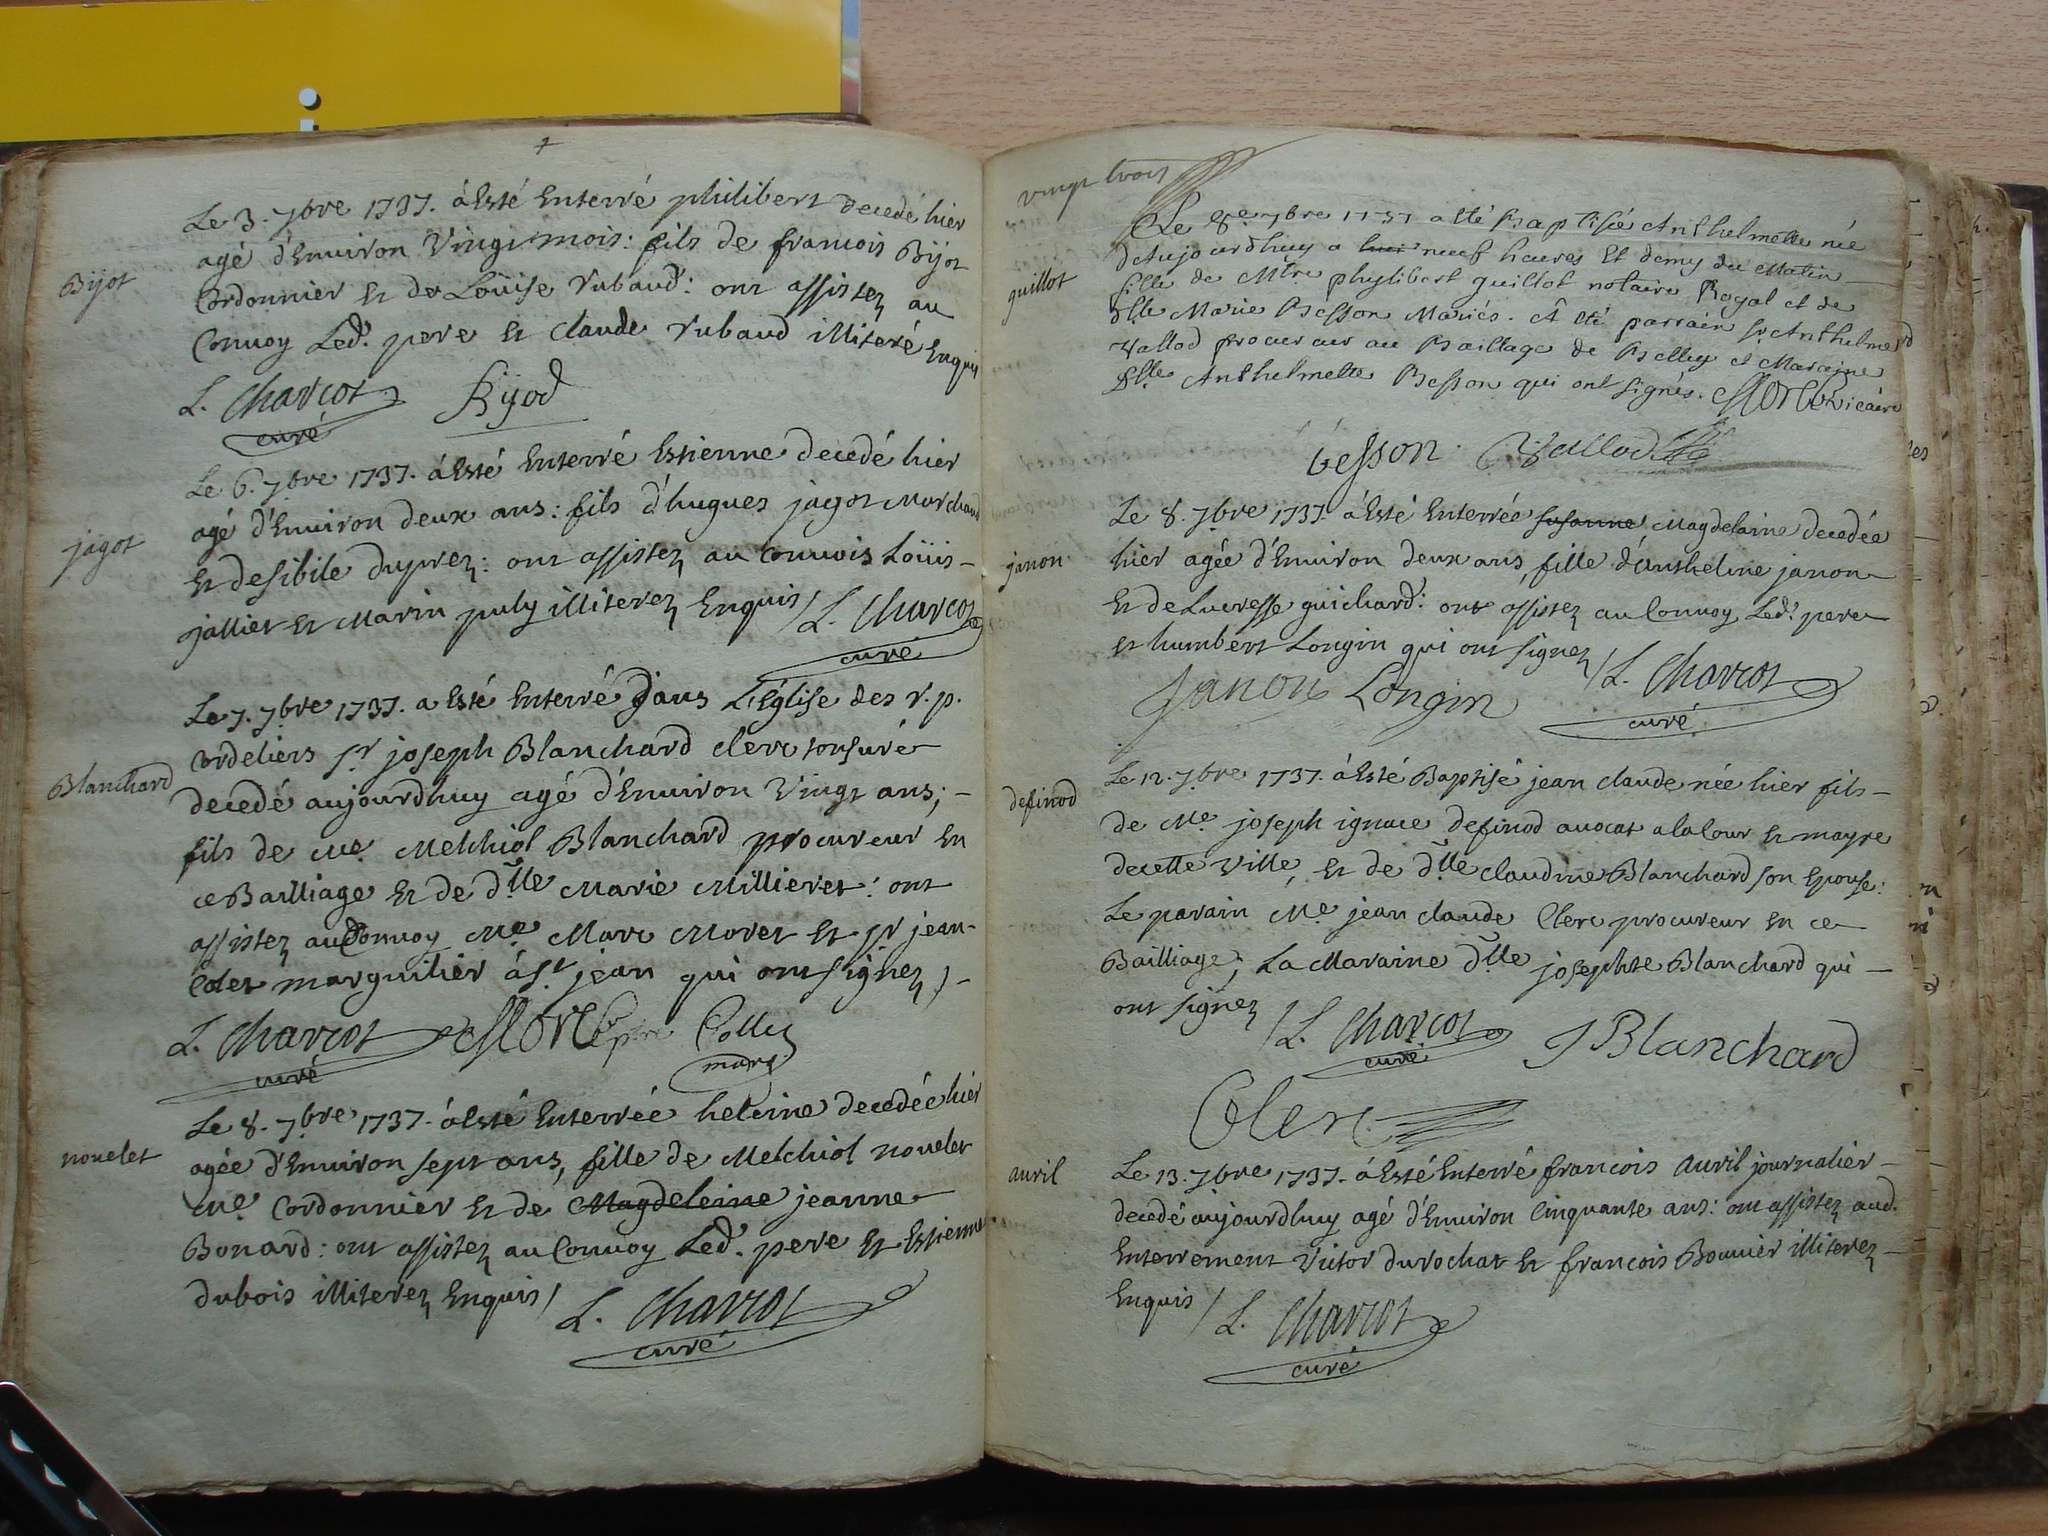 Le 3. 7bre 1737. à Esté Enterré philibert decedé hier
agé d'Environ Vingt mois: fils de francois Bijot
Bijot
Cordonnier et de Loüise Rubaud: ont assistez au
Convoy Led. pere et Claude Rubaud illiteré Enquis
L. Charcot Bijod
curé
Le 6. 7bre 1737. à Esté Enterré Estienne decedé hier
agé d'Environ deux ans: fils d'hugues jagot Marchand
jagot
et de sibile duprez: ont assistez au Convois Loüis
jallier et Marin puly illiterez Enquis / L. Charcot
curé
Le 7. 7bre 1737. a Esté Enterré dans L'Église des r. p.
Cordeliers sr. joseph Blanchard clerc tonsuré
Blanchard
decedé aujourdhuy agé d'Environ Vingt ans;
fils de Me. Melchiol Blanchard procureur en
ce Bailliage et de dlle Marie Millieret: ont
assistez au Convoy Me. Marc Moret et sr jean
Colet marguilier à st. jean qui ont signez /
L. Charcot Morel ptre Collet
curé marg.
Le 8. 7bre 1737. à Esté Enterrée heleine decedée hier
agée d'Environ sept ans, fille de Melchiol nouelet
nouelet
Me. Cordonnier et de Magdeleine jeanne
Bonard: ont assistez au Convoy Led. pere et Estienne
dubois illiterez Enquis / L. Charcot
curé
vingt trois
Le 8e 7bre 1737 a Eté Baptisée Anthelmette née
d'Aujourdhuy a neuf heures Et demy du Matin
guillot
fille de Mtre phylibert guillot notaire Royal et de
Dlle Marie Besson Mariés. A été parrain sr. Anthelme
Vallod procureur au Bailliage de Belley et Maraine
Dlle Anthelmette Besson qui ont signés. Morel vicaire
besson Vallod
Le 8. 7bre 1737. à Esté Enterrée susanne Magdelaine decedée
janon
hier agée d'Environ deux ans, fille d'Anthelme janon
et de Lucresse guichard: ont assistez au Convoy Led. pere
et humbert Longin qui ont signez / L. Charcot
Janon Longin curé
Le 12. 7bre 1737. à Esté Baptisé jean claude née hier fils
definod
de Me. joseph ignace definod avocat a la Cour et mayre
de cette Ville, et de dlle claudine Blanchard son Epouse:
Le parain Me. jean claude Clerc procureur en ce
Bailliage; La Maraine dlle josephte Blanchard qui
ont signez / L. Charcot J Blanchard
curé
Clerc
avril
Le 13. 7bre 1737. à Esté Enterré francois avril journalier
decedé aujourdhuy agé d'Environ Cinquante ans: ont assistez aud.
Enterrement Victor durochat et francois Bouvier illiterez
Enquis / L. Charcot
curé